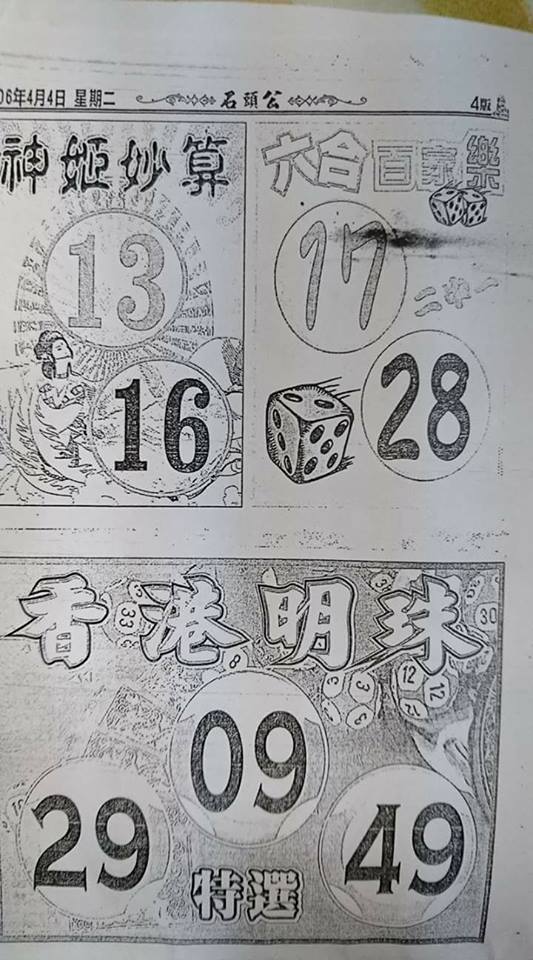 06年4月4日 星期二
石頭公
4版
神姬妙算
13
16
六合百家樂
17
二中一
28
香港明珠
33
8
3
3
12
12
30
09
29
49
特選